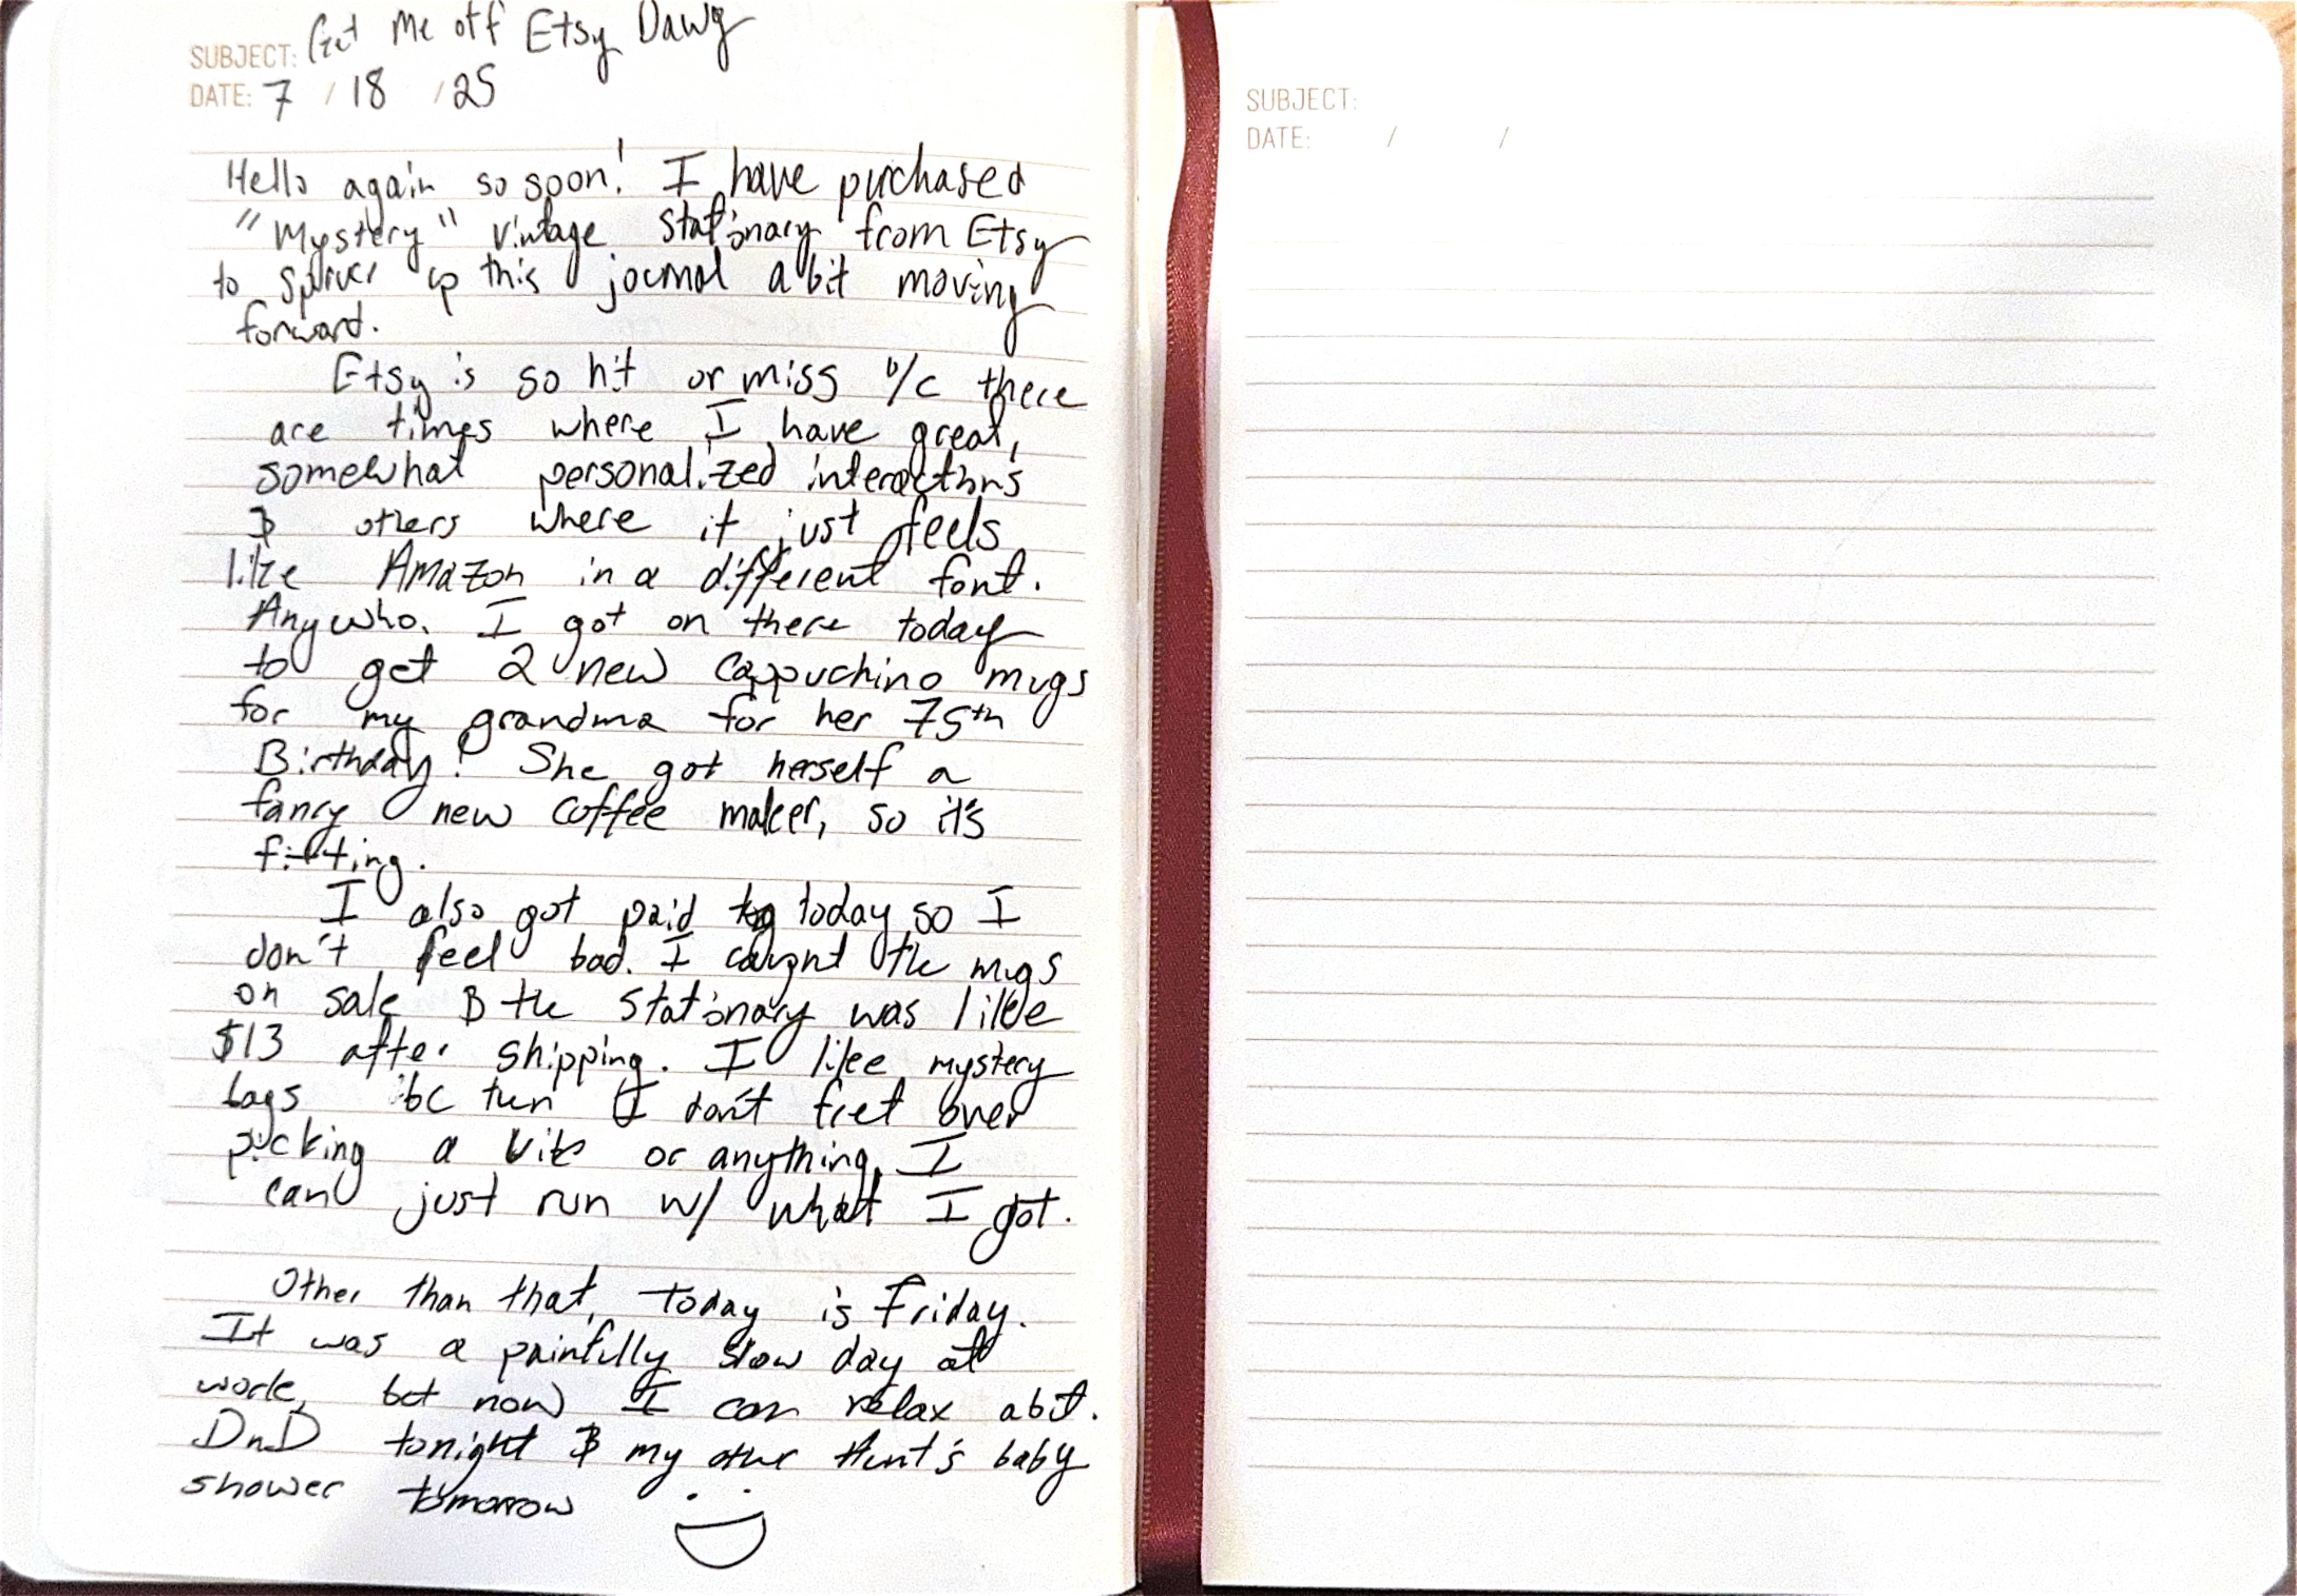 SUBJECT: Get Me off Etsy Dawg
DATE: 7 / 18 / 25
Hello again so soon! I have purchased
"Mystery" vintage stationary from Etsy
to spruce up this journal a bit moving
forward.
Etsy is so hit or miss b/c there
are times where I have great,
somewhat personalized interactions
& others where it just feels
like Amazon in a different font.
Anywho. I got on there today
to get 2 new cappuchino mugs
for my grandma for her 75th
Birthday! She got herself a
fancy new coffee maker, so it's
fitting.
I also got paid today, so I
don't feel bad. I caught the mugs
on sale & the stationary was like
$13 after shipping. I like mystery
bags bc then I don't fret over
picking a vibe or anything, I
can just run w/ what I got.
Other than that, today is Friday.
It was a painfully slow day at
work, but now I can relax a bit.
DnD tonight & my other Aunt's baby
shower tomorrow
SUBJECT:
DATE: / /